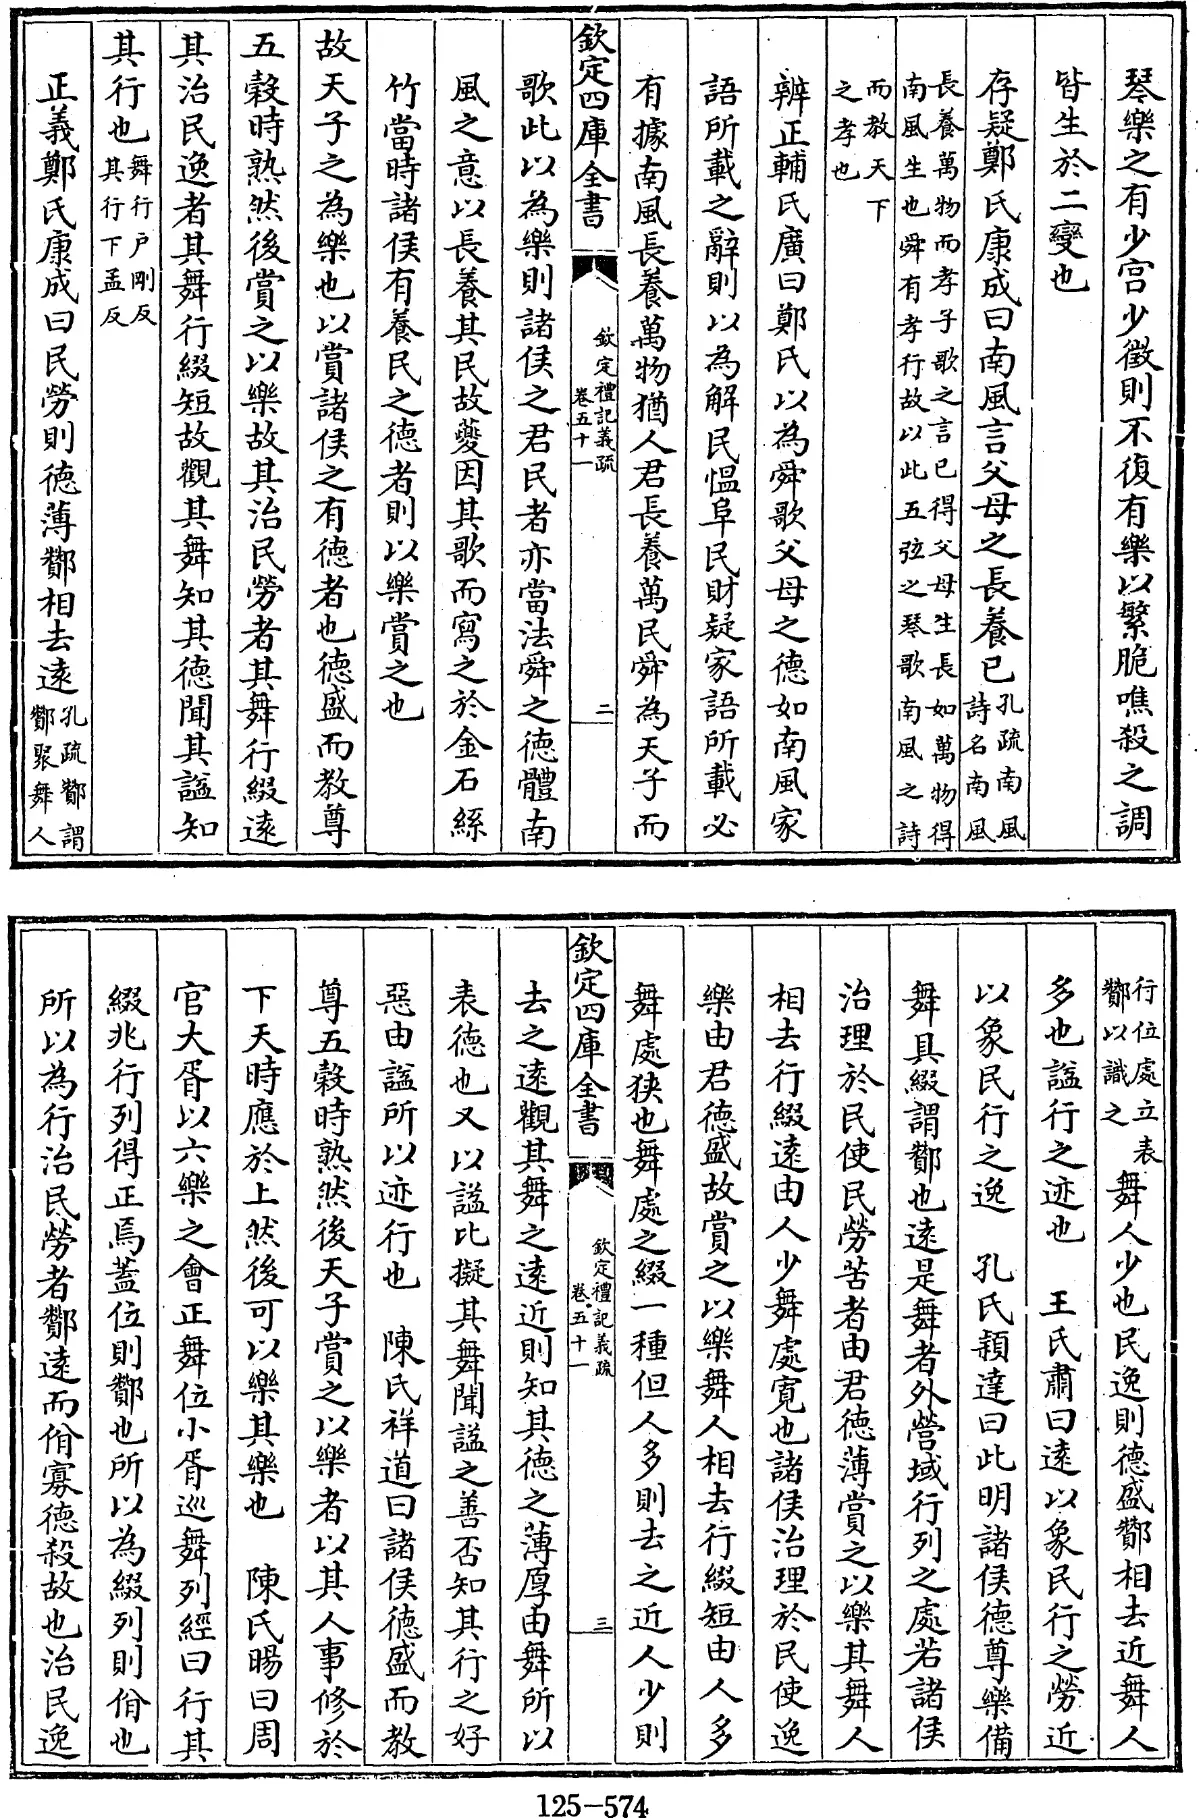 琴樂之有少宫少徵則不復有樂以繁脆噍殺之調
皆生於二變也
存疑鄭氏康成曰南風言父母之長養已孔疏南風
詩名南風
長養萬物而孝子歌之言已得父母生長如萬物得
南風生也舜有孝行故以此五弦之琴歌南風之詩
而教天下
之孝也
辨正輔氏廣曰鄭氏以為舜歌父母之德如南風家
語所載之辭則以為解民愠阜民財疑家語所載必
有據南風長養萬物猶人君長養萬民舜為天子而
欽定四庫全書
欽定禮記義疏
卷五十一
二
歌此以為樂則諸侯之君民者亦當法舜之德體南
風之意以長養其民故夔因其歌而寫之於金石絲
竹當時諸侯有養民之德者則以樂賞之也
故天子之為樂也以賞諸侯之有德者也德盛而教尊
五穀時熟然後賞之以樂故其治民勞者其舞行綴遠
其治民逸者其舞行綴短故觀其舞知其德聞其諡知
其行也舞行户剛反
其行下孟反
正義鄭氏康成曰民勞則德薄酇相去遠孔疏酇謂
酇聚舞人
行位處立表
酇以識之
舞人少也民逸則德盛酇相去近舞人
多也諡行之迹也　王氏肅曰遠以象民行之勞近
以象民行之逸　孔氏穎達曰此明諸侯德尊樂備
舞具綴謂酇也遠是舞者外營域行列之處若諸侯
治理於民使民勞苦者由君德薄賞之以樂其舞人
相去行綴遠由人少舞處寛也諸侯治理於民使逸
樂由君德盛故賞之以樂舞人相去行綴短由人多
舞處狹也舞處之綴一種但人多則去之近人少則
欽定四庫全書
欽定禮記義疏
卷五十一
三
去之遠觀其舞之遠近則知其德之薄厚由舞所以
表德也又以諡比擬其舞聞諡之善否知其行之好
惡由諡所以迹行也　陳氏祥道曰諸侯德盛而教
尊五穀時熟然後天子賞之以樂者以其人事修於
下天時應於上然後可以樂其樂也　陳氏暘曰周
官大胥以六樂之會正舞位小胥巡舞列經曰行其
綴兆行列得正焉蓋位則酇也所以為綴列則佾也
所以為行治民勞者酇遠而佾寡德殺故也治民逸
125-574